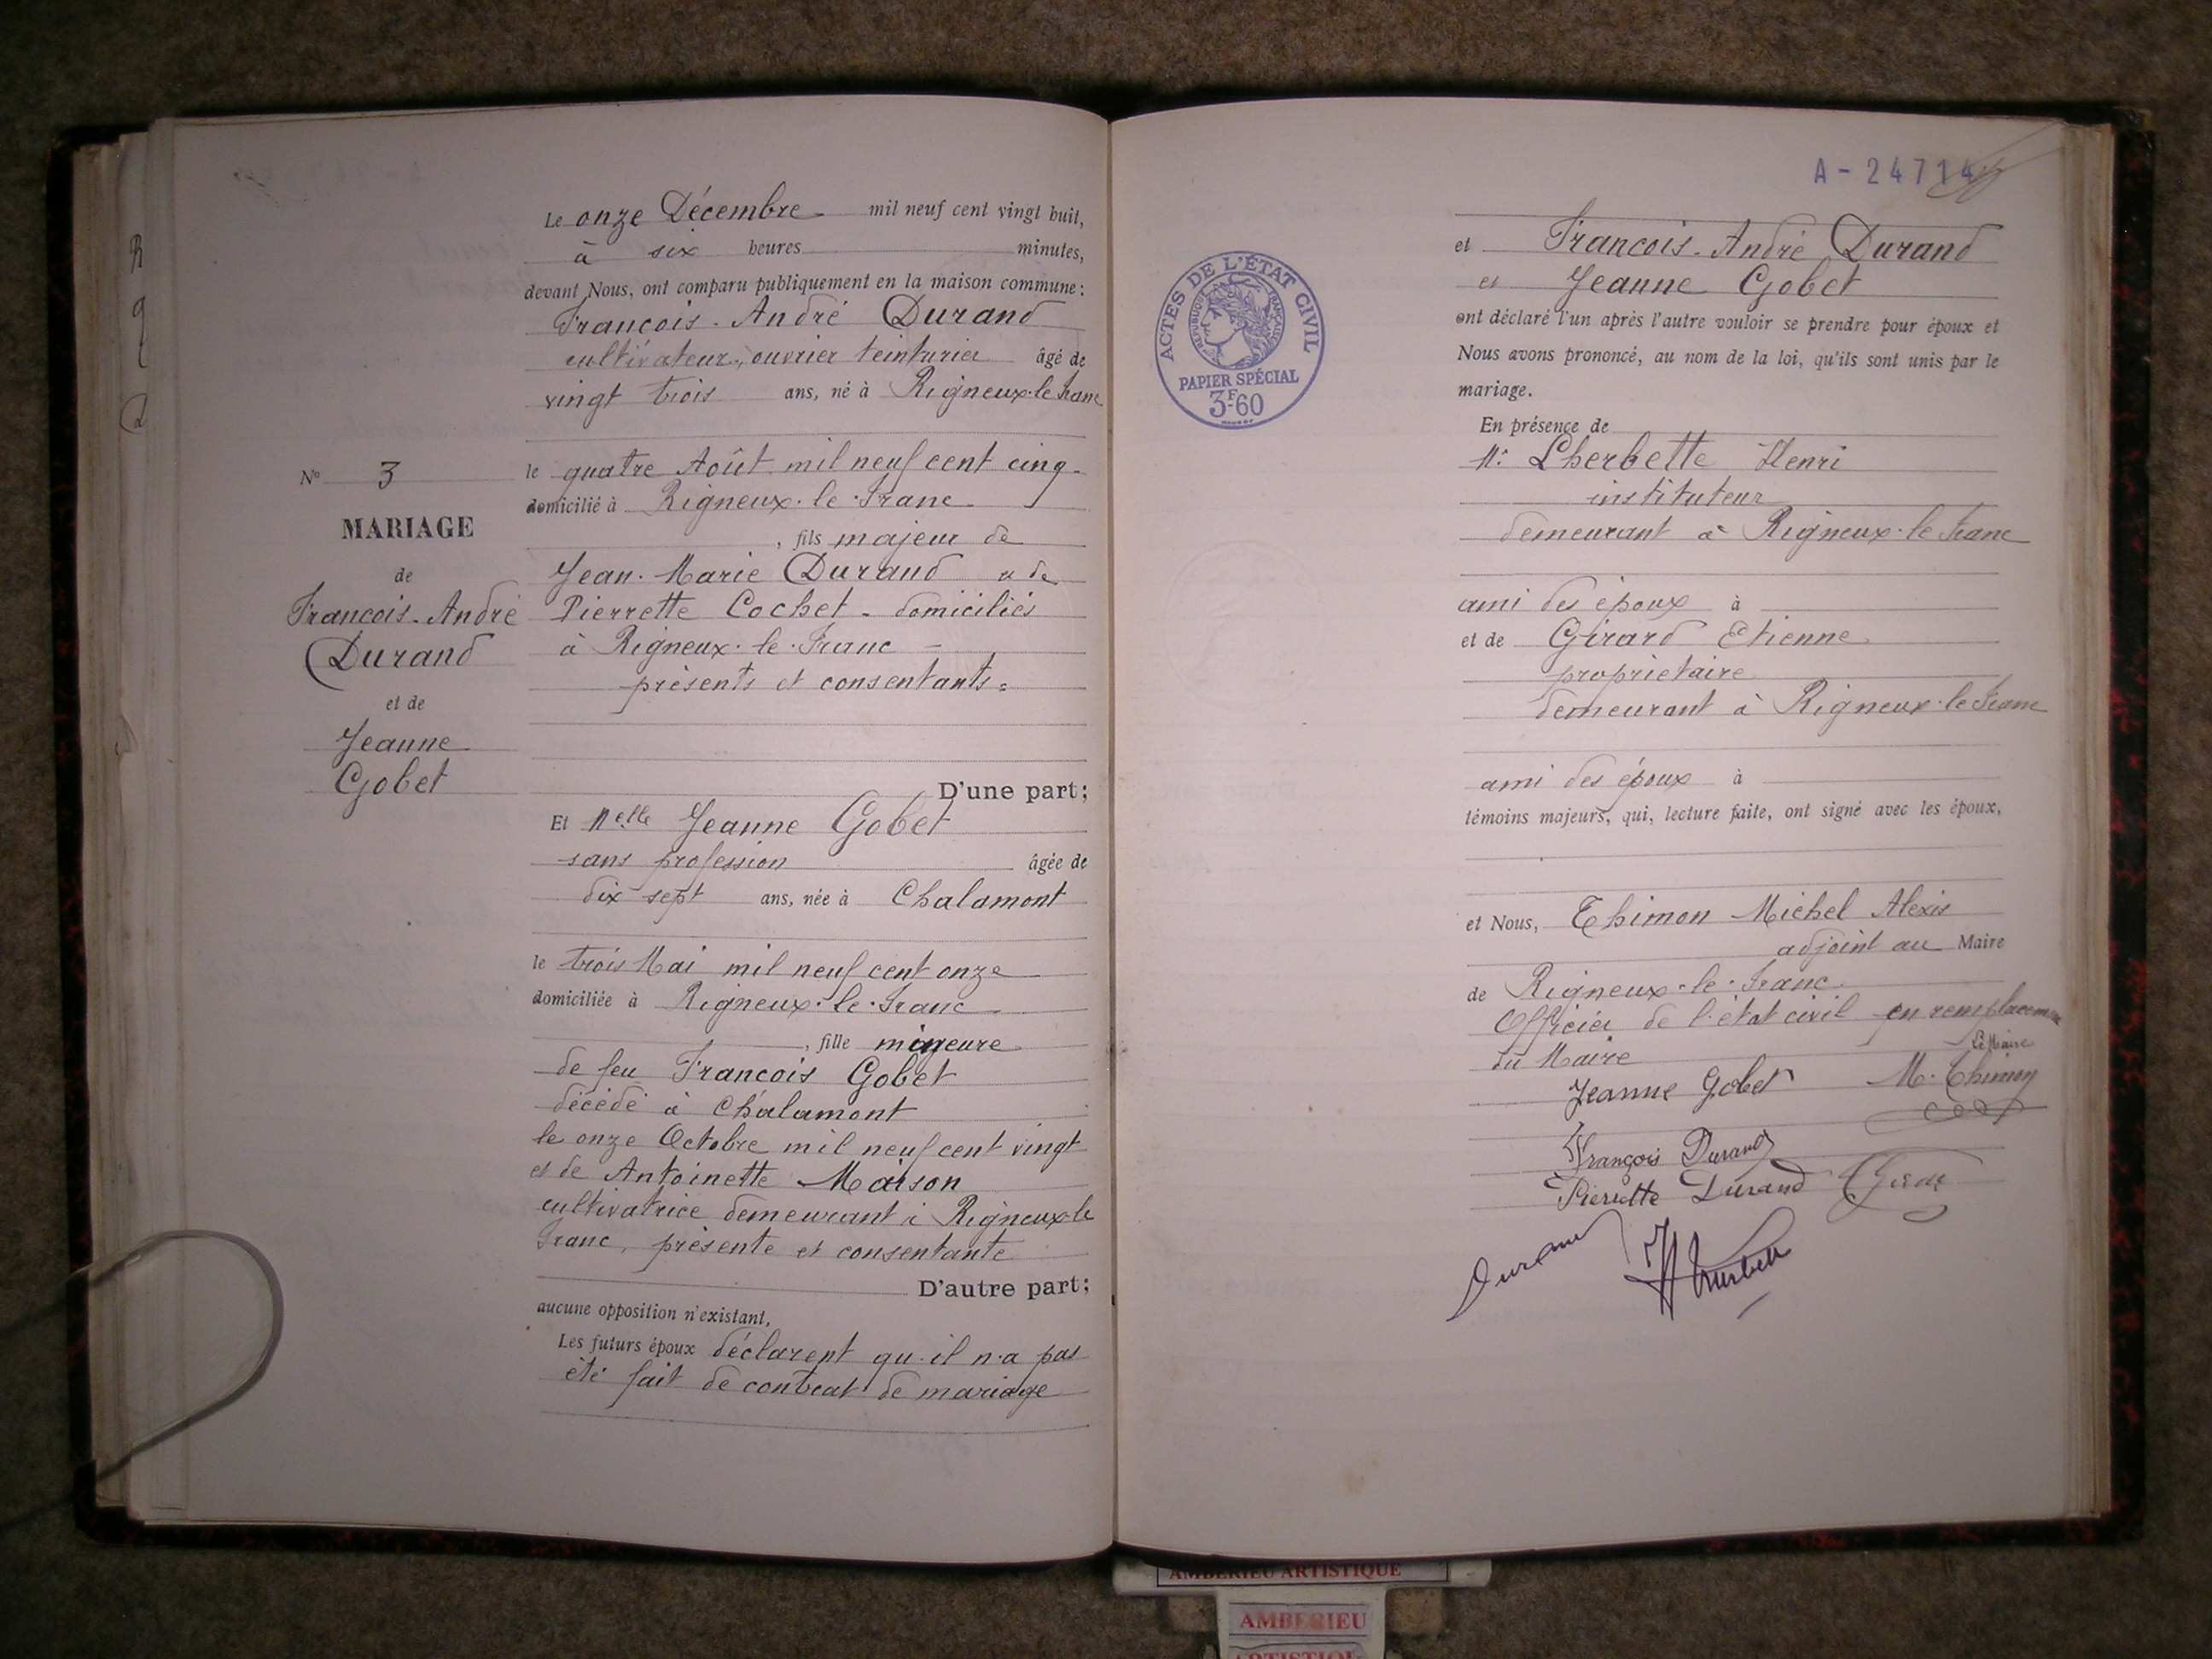 Le onze Décembre mil neuf cent vingt huit,
à six heures minutes,
devant Nous, ont comparu publiquement en la maison commune:
François-André Durand
cultivateur, ouvrier teinturier âgé de
vingt trois ans, né à Rigneux-le-Franc
le quatre Août mil neuf cent cinq
domicilié à Rigneux-le-Franc
, fils majeur de
Jean-Marie Durand et de
Pierrette Cochet - domiciliés
à Rigneux-le-Franc -
présents et consentants
D'une part;
Et Melle Jeanne Gobet
sans profession âgée de
dix sept ans, née à Chalamont
le trois Mai mil neuf cent onze
domiciliée à Rigneux-le-Franc
, fille mineure
de feu François Gobet
décédé à Chalamont
le onze Octobre mil neuf cent vingt
et de Antoinette Maison
cultivatrice demeurant à Rigneux-le
Franc, présente et consentante
D'autre part;
aucune opposition n'existant,
Les futurs époux déclarent qu'il n'a pas
été fait de contrat de mariage
No 3
MARIAGE
de
François-André
Durand
et de
Jeanne
Gobet
A-24714
ACTES DE L'ÉTAT CIVIL
RÉPUBLIQUE FRANÇAISE
PAPIER SPÉCIAL
3F60
et François-André Durand
et Jeanne Gobet
ont déclaré l'un après l'autre vouloir se prendre pour époux et
Nous avons prononcé, au nom de la loi, qu'ils sont unis par le
mariage.
En présence de
Mr Lherbette Henri
instituteur
demeurant à Rigneux-le-Franc
ami des époux à
et de Girard Etienne
propriétaire
demeurant à Rigneux-le-Franc
ami des époux à
témoins majeurs, qui, lecture faite, ont signé avec les époux,
et Nous, Thimon Michel Alexis
adjoint au Maire
de Rigneux-le-Franc
Officier de l'état civil en remplacement
du Maire
Le Maire
Jeanne Gobet M. Thimon
François Durand
Pierrette Durand Girard
Durand Lherbette
AMBERIEU ARTISTIQUE
AMBERIEU
ARTISTIQUE